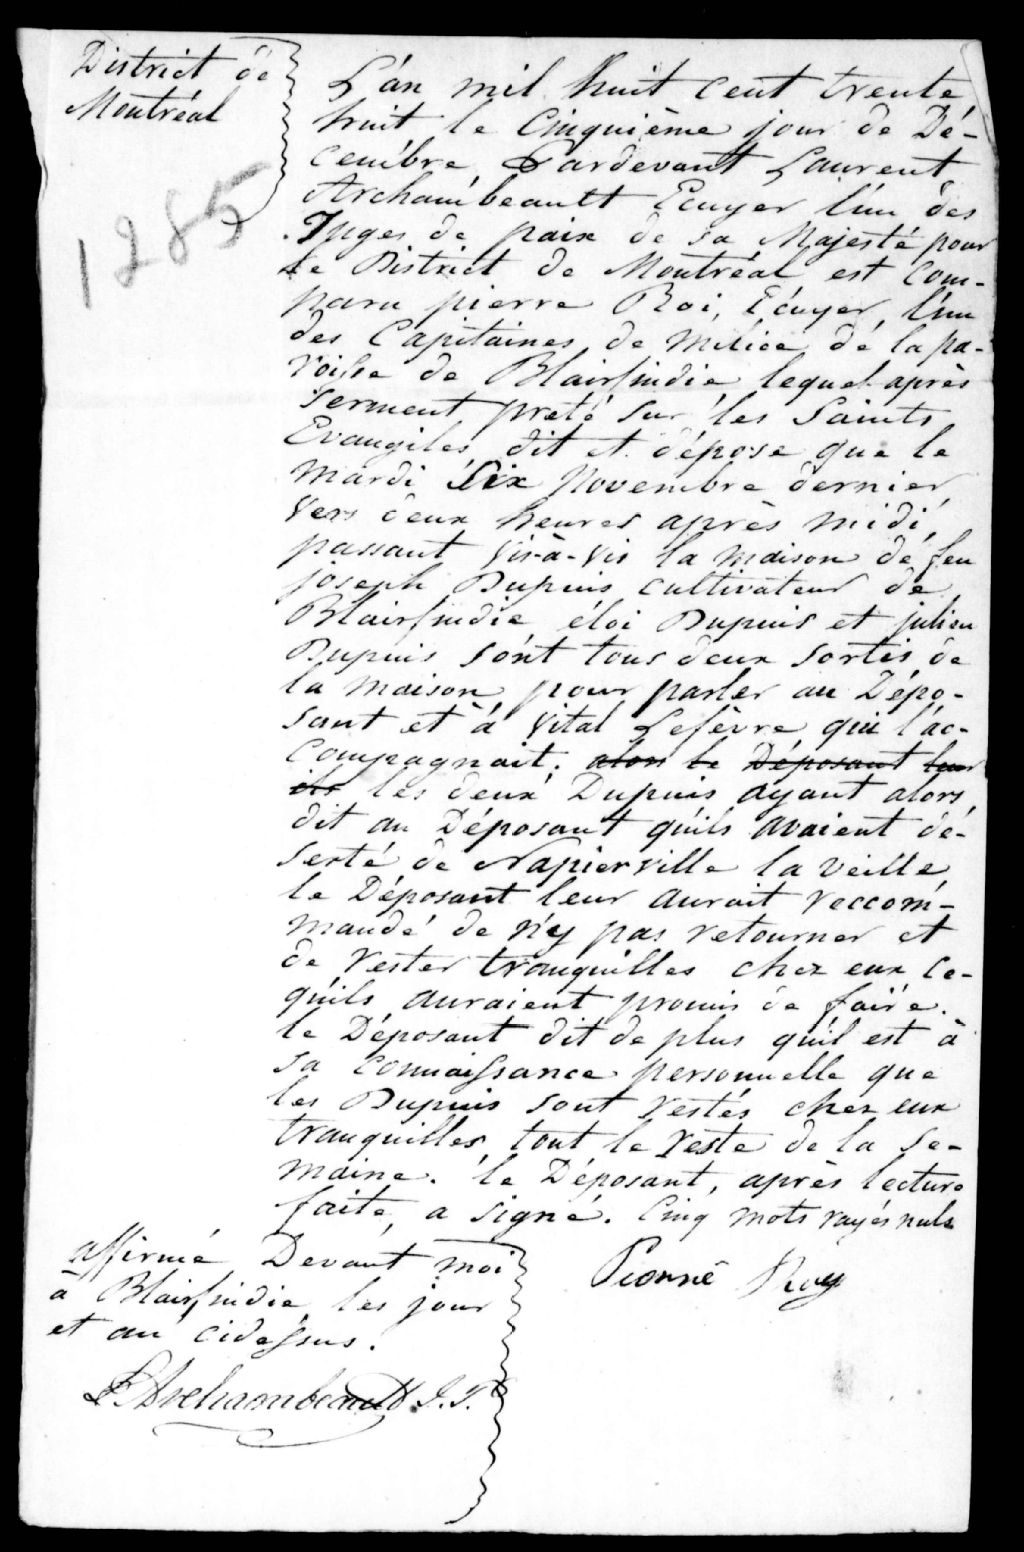 District de
Montréal
1285
L'án mil huit cent trente
huit, le Cinquième jour de Dé-
cembre, Pardevant Laurent
Archambeault Ecuyer l'un des
Juges de paix de sa Majesté pour
le District de Montréal est Com-
paru pierre Roi, Ecuyer, l'un
des Capitaines de Milice de la pa-
roisse de Blairfindie lequel après
serment preté sur les Saints
Evangiles, dit et dépose que le
mardi Six Novembre dernier,
Vers deux heures après midi,
passant Vis-à-Vis la maison de feu
joseph Dupuis cultivateur de
Blairfindie éloi Dupuis et julien
Dupuis sont tous deux sortis de
la maison pour parler au Dépo-
sant et à Vital Lefèvre qui l'ac-
compagnait. alors le Déposant leur
ils les deux Dupuis ayant alors
dit au Déposant qu'ils avaient dé-
serté de Napierville la veille
le Déposant leur aurait reccom-
mandé de n'y pas retourner et
de rester tranquilles chez eux ce-
qu'ils auraient promis de faire.
le Déposant dit de plus qu'il est à
sa connaissance personnelle que
les Dupuis sont restés chez eux
tranquilles tout le reste de la se-
maine. le Déposant, après lecture
faite, a signé. Cinq mots rayés nuls
Pierre Roy
affirmé Devant moi
à Blairfindie, les jour
et an cidessus.
L Archambeault J. P.